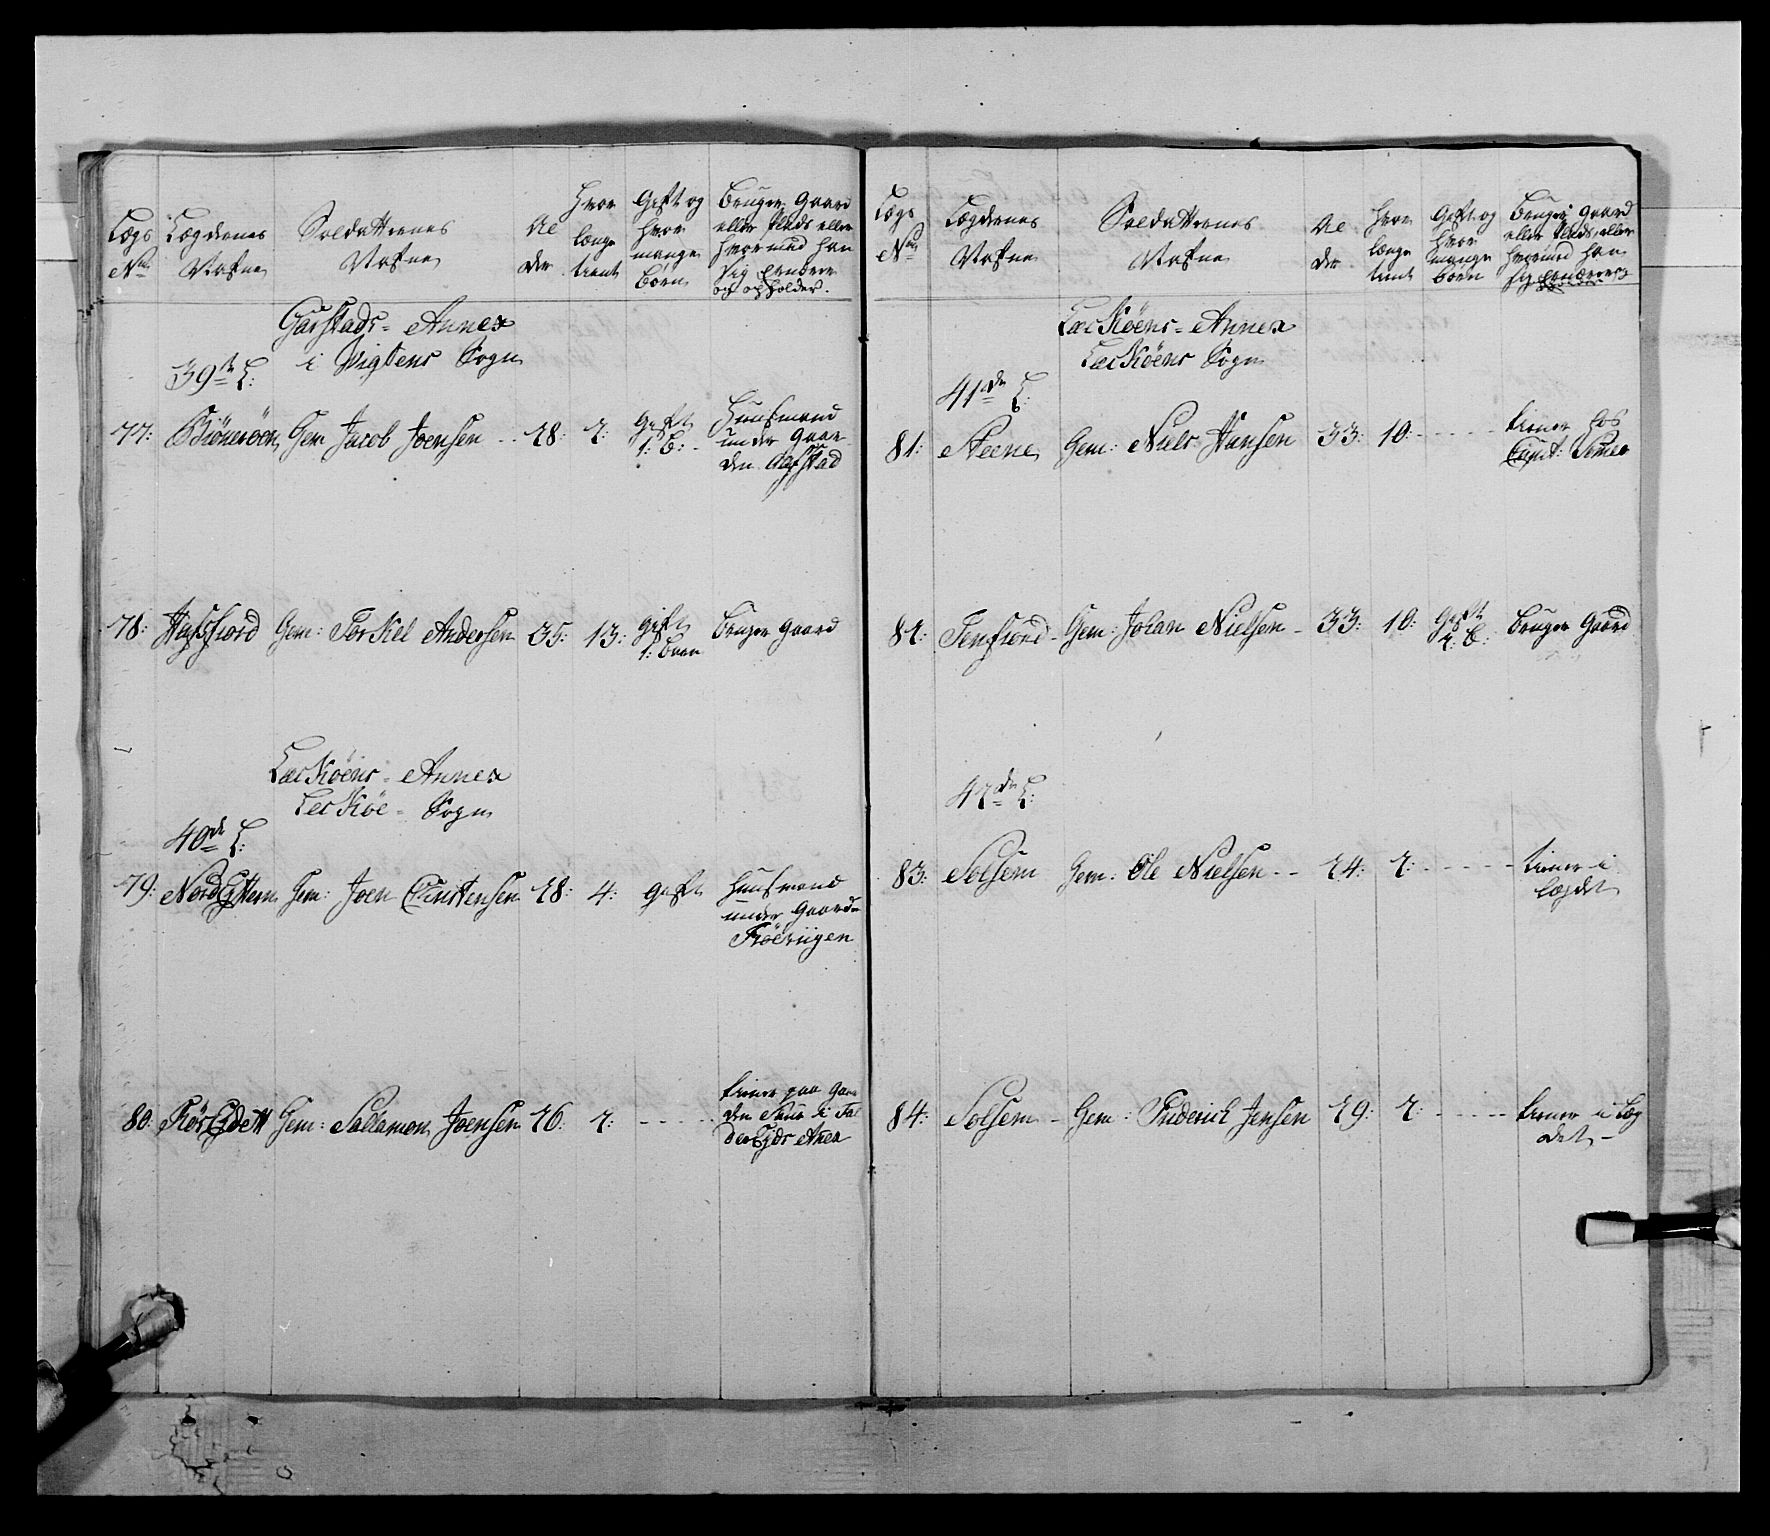 Lægs No
Lægdernes Nafne
Soldatternes Nafne
Al der
Hvor længe tient
Gift og hvor mange børn
Bruger Gaard eller Plads eller hvormed han sig ernærer og opholder.
Garstads - Annex
i Vigtens Sogn
39te L:
77: Biönöen Gem Jacob Joensen - - 28: 2: Gift 1: B: - Huusmand under Gaarden Garstad
78: Hafsfiord Gem: Torkel Andersen 35: 13: gift 1: barn bruger gaard
Lec Köens - Annex
Lec Köe - Sogn
40de L:
79: Nord Gem: Joen Christensen 28: 4: gift huusmand under Gaarden
80: Gem: Sallamon Joensen 26: 2: - - - - - tiener paa Gaarden i Annex
Lægs No
Lægdernes Nafne
Soldatternes Nafne
Al der
Hvor længe tient
Gift og hvor mange børn
Bruger Gaard eller Plads, eller hvormed han sig ernærer
Lec Köens - Annex
Lec Köens Sogn
41de L:
81: Steene Gem: Niels Hansen 33: 10: - - - - - tiener hos
82: Tenfiord - Gem: Johan Nielsen - 33: 10: Gift 2: B: bruger Gaard
42de L:
83: Solsem Gem: Ole Nielsen - - 24: 2: - - - - - tiener i lægdet
84: Solsem - Gem: Friderich Jensen 29: 2: - - - - - tiener i Læg det -